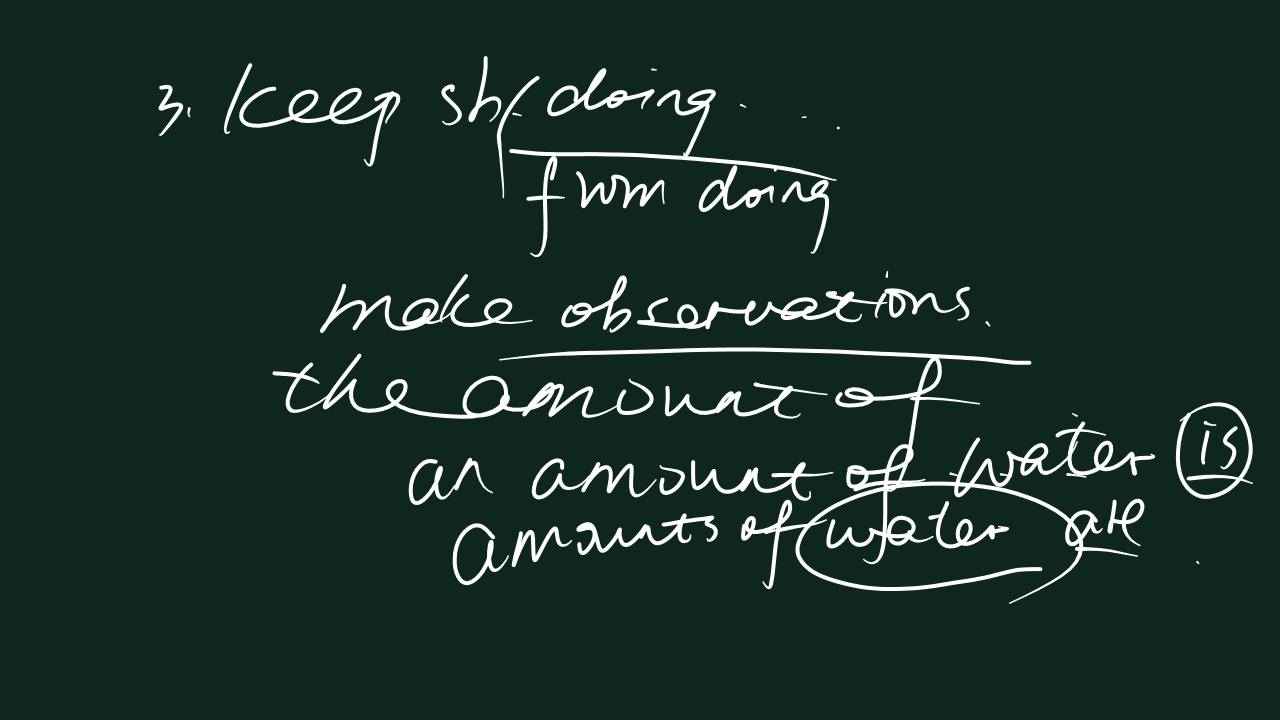 3. keep sb/doing...
from doing
make observations.
the amount of
an amount of water is
amounts of water are